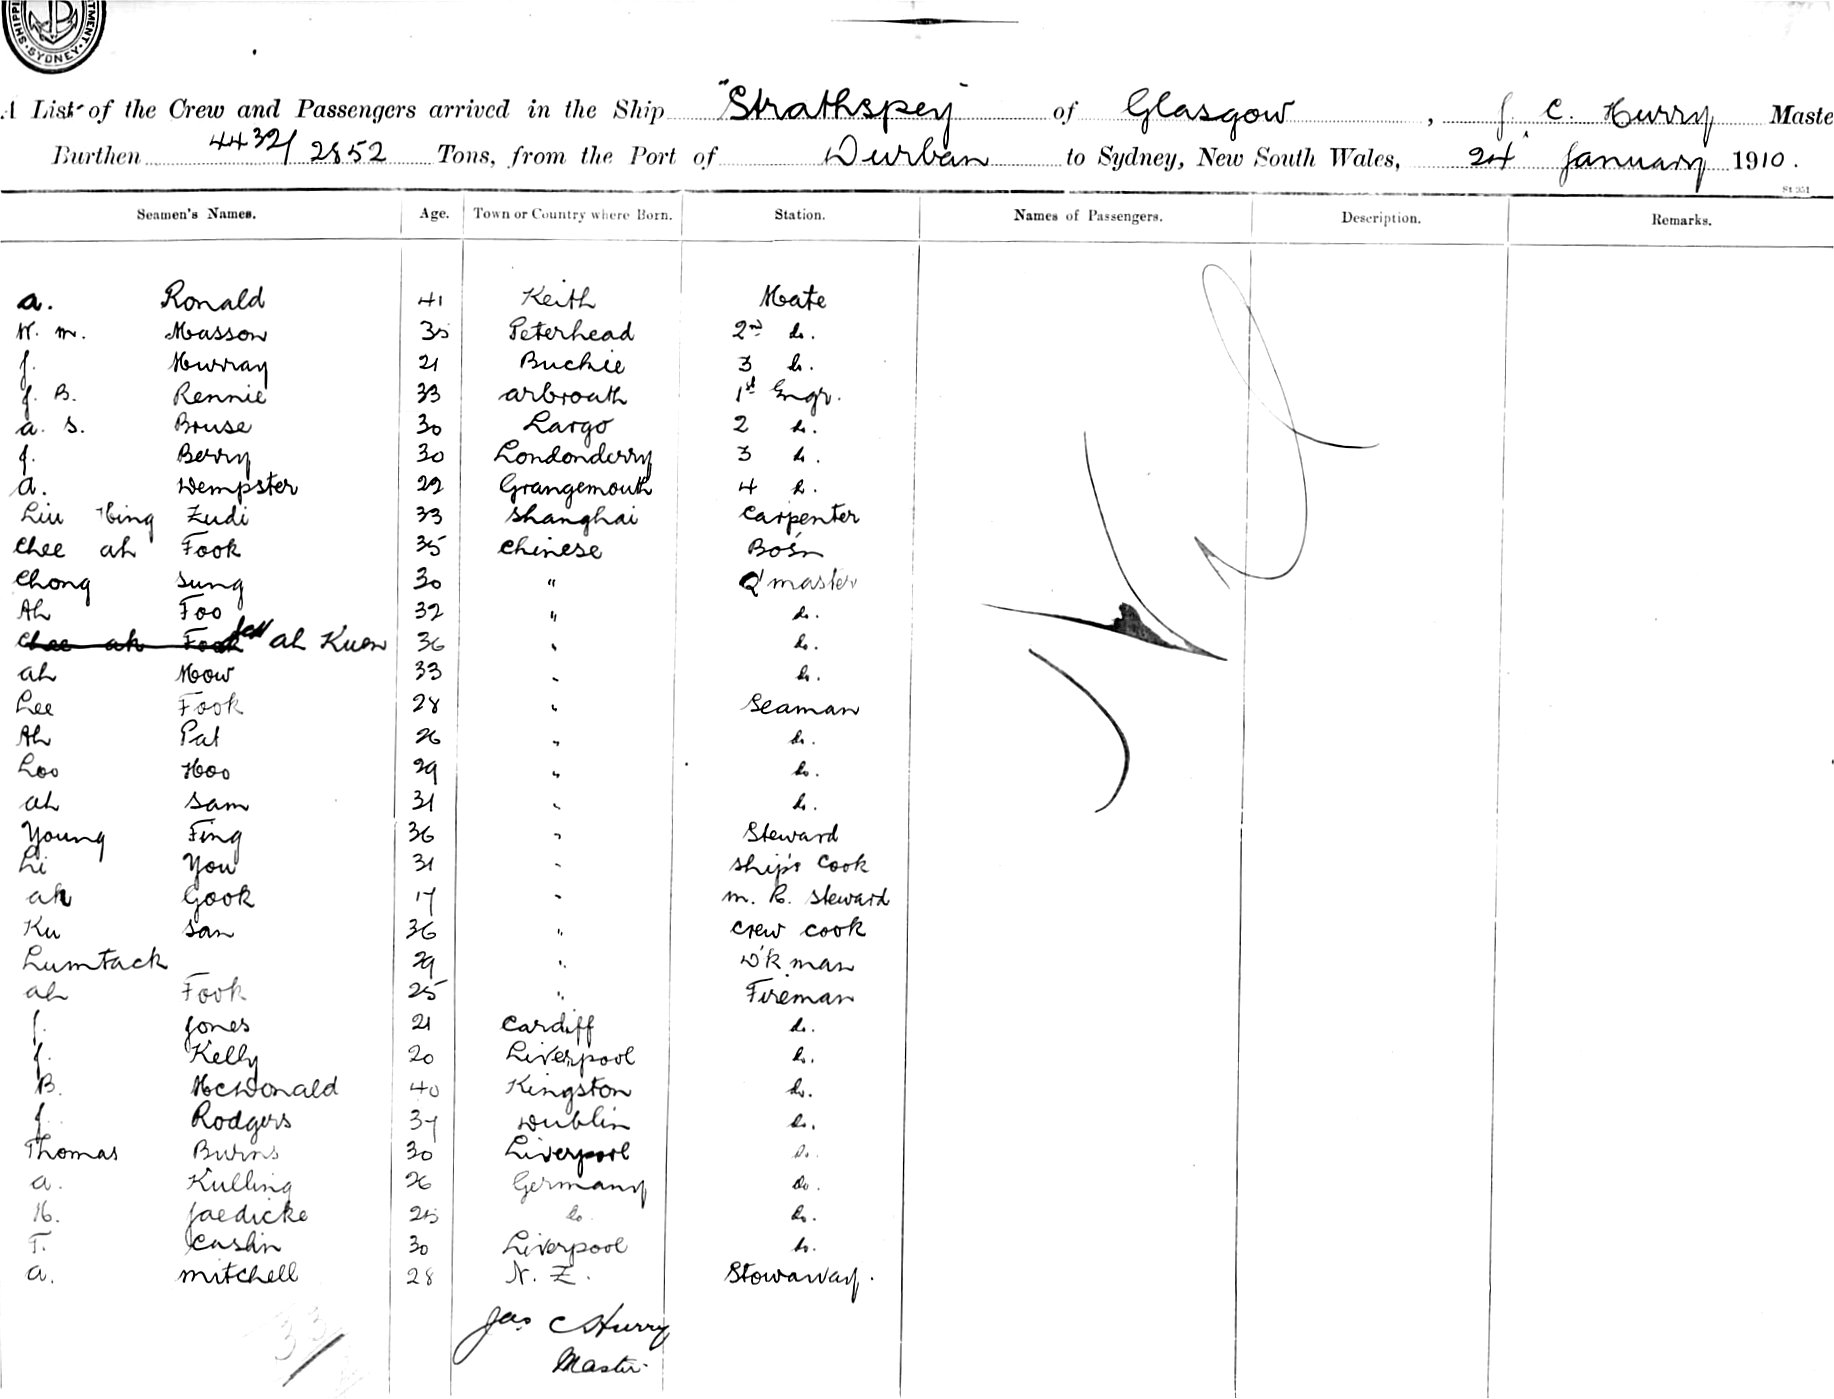 SHIPPI TMENT · SYDNEY ·
A List of the Crew and Passengers arrived in the Ship "Strathspey" of Glasgow, J. C. Hurry Maste
Burthen 4432/2852 Tons, from the Port of Durban to Sydney, New South Wales, 24 January 1910.
St 351
Seamen's Names. Age. Town or Country where Born. Station. Names of Passengers. Description. Remarks.
A. Ronald 41 Keith Mate
W. M. Masson 35 Peterhead 2nd do.
J. Murray 21 Buckie 3 do.
J. B. Rennie 33 Arbroath 1st Engr.
A. S. Bruse 30 Largo 2 do.
J. Berry 30 Londonderry 3 do.
A. Dempster 22 Grangemouth 4 do.
Liu Hing Zudi 33 Shanghai Carpenter
Chee Ah Fook 35 Chinese Bo's'n
Chong Sung 30 " Q'master
Ah Foo 32 " do.
Chee Ah Fook Ah Kuen 36 " do.
Ah Mow 33 " do.
Lee Fook 28 " Seaman
Ah Pat 26 " do.
Loo Hoo 29 " do.
Ah Sam 31 " do.
Young Fing 36 " Steward
Li You 31 " Ship's Cook
Ah Gook 17 " M. R. Steward
Ku San 36 " Crew Cook
Lumtack 29 " D'k man
Ah Fook 25 " Fireman
J. Jones 21 Cardiff do.
J. Kelly 20 Liverpool do.
B. McDonald 40 Kingston do.
J. Rodgers 37 Dublin do.
Thomas Burns 30 Liverpool do.
A. Kulling 26 Germany do.
H. Jaedicke 25 do. do.
T. Caslin 30 Liverpool do.
A. Mitchell 28 N. Z. Stowaway.
Jas C Hurry
Master
33